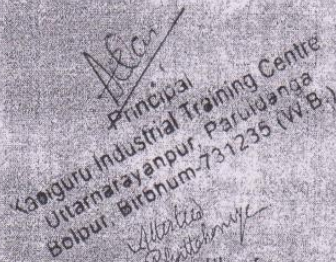 Principal
Kabiguru Industrial Training Centre
Uttarnarayanpur, Paruldanga
Bolpur, Birbhum-731235 (W.B.)
Attested